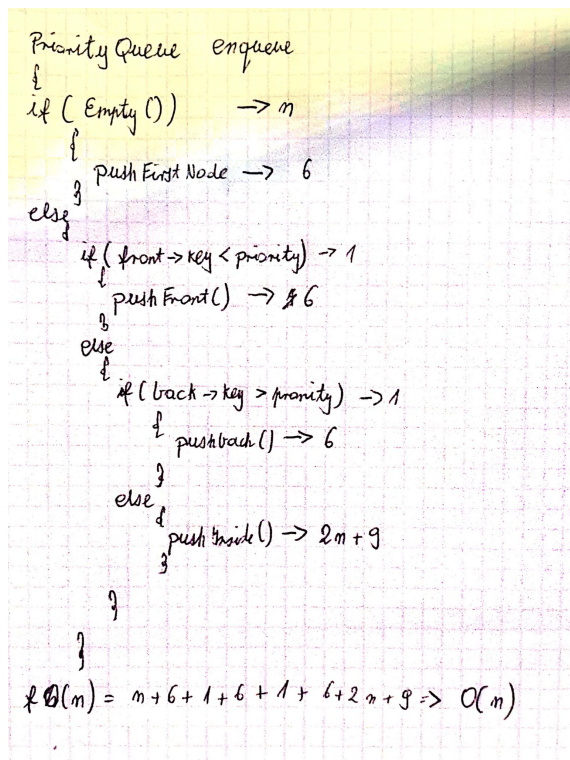 Priority Queue enqueue
{
if ( Empty ())  -> n
{
push First Node -> 6
}
else
{
if ( front -> key < priority) -> 1
{
push Front() -> 6
}
else
{
if ( back -> key > priority) -> 1
{
pushback () -> 6
}
else
{
push Inside () -> 2n + 9
}
}
}
(n) = n + 6 + 1 + 6 + 1 + 6 + 2n + 9 => O(n)